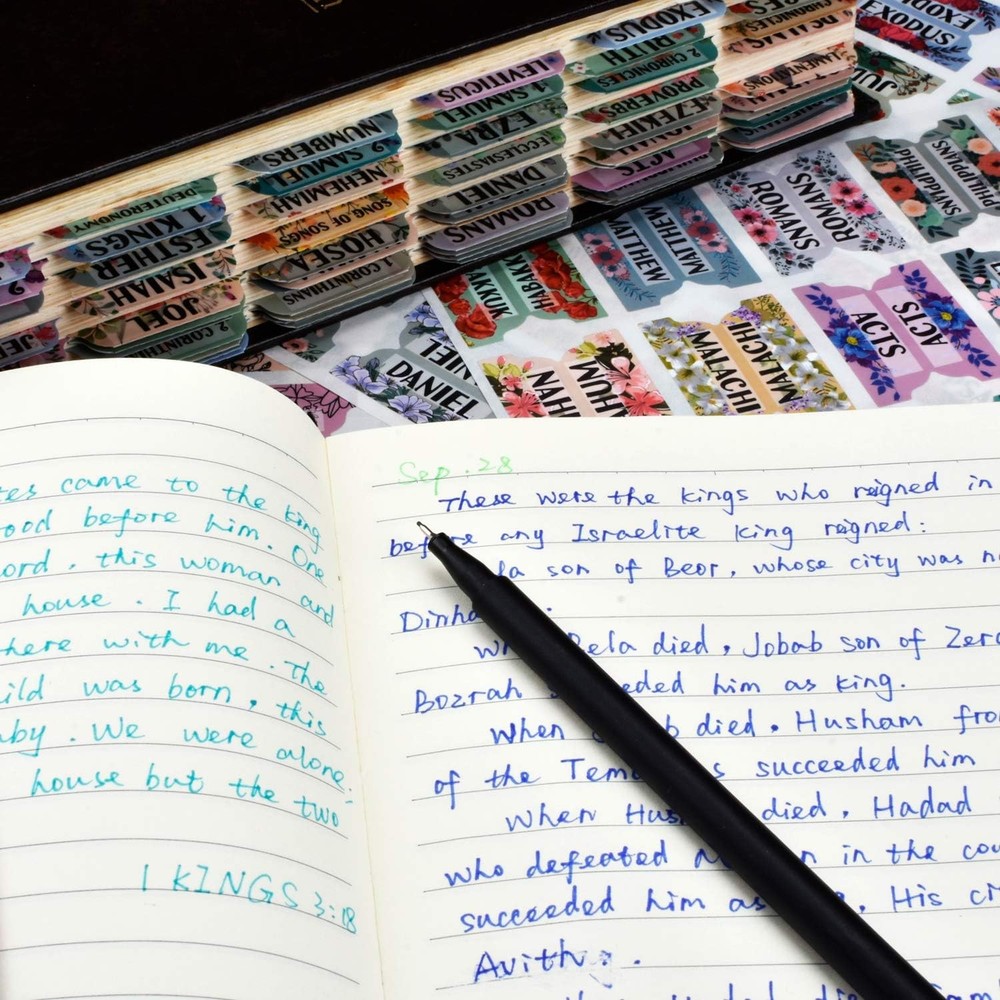 EXODUS
RUTH
2 CHRONICLES
PROVERBS
EZEKIEL
ACTS
LAMENTATIONS
LEVITICUS
1 SAMUEL
EZRA
ECCLESIASTES
DANIEL
ROMANS
NUMBERS
2 SAMUEL
NEHEMIAH
SONG OF SONGS
HOSEA
1 CORINTHIANS
DEUTERONOMY
1 KINGS
ESTHER
ISAIAH
JOEL
2 CORINTH
EXODUS
EXODUS
ROMANS
ROMANS
PHILIPPIANS
PHILIPPIANS
MATTHEW
MATTHEW
HABAKK
ACTS
ACTS
MALACHI
MALACHI
NAH
NAHUM
DANIEL
NIEL
came to the king
before him. One
, this woman and
house. I had a
with me. The
was born, this
. We were alone;
house but the two
1 KINGS 3:18
Sep. 28
These were the kings who reigned in
before any Israelite king reigned:
la son of Beor, whose city was n
Dinha
Bela died, Jobab son of Zer
Bozrah eded him as king.
When b died, Husham fro
of the Tem s succeeded him
When Hus died, Hadad
who defeated n in the cou
succeeded him as , His ci
Avith.